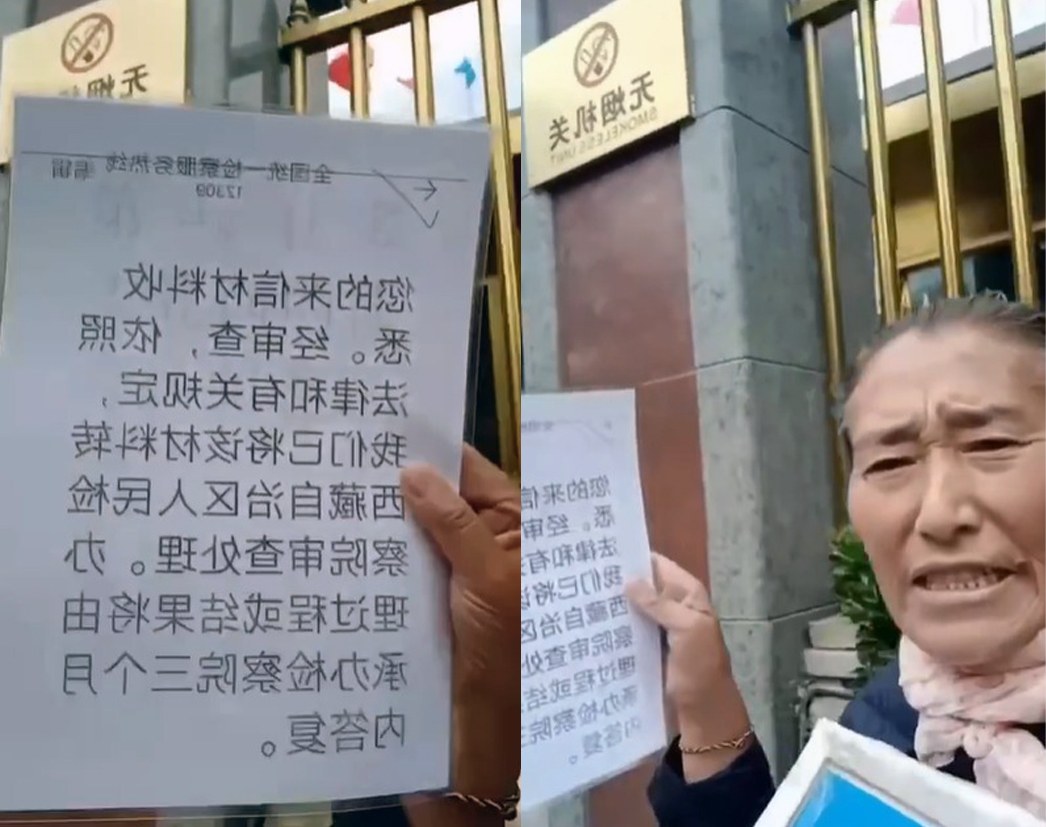 无烟
全国统一检察服务热线 编辑
12309
您的来信材料收
悉。经审查，依照
法律和有关规定，
我们已将该材料转
西藏自治区人民检
察院审查处理。办
理过程或结果将由
承办检察院三个月
内答复。
无烟机关
SMOKELESS UNIT
您的来信
悉。经审
法律和有
我们已将该
西藏自治区
察院审查处
理过程或结
承办检察院三
内答复。